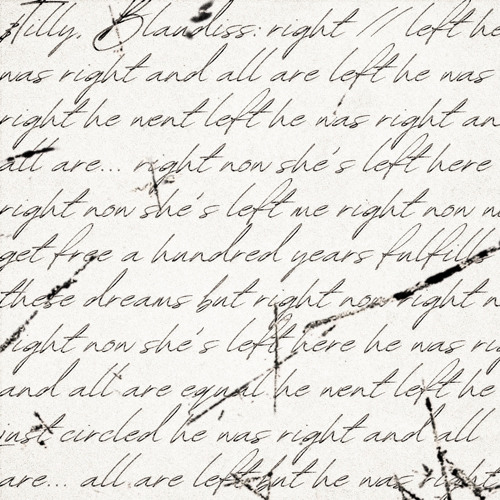 Tilly. Blandiss: right // left he
was right and all are left he was
right he went left he was right an
all are... right now she's left here
right now she's left me right now
get free a hundred years fulfills
these dreams but right now right
right now she's left here he was
and all are equal he went left he
just circled he was right and all
are... all are left but he was right